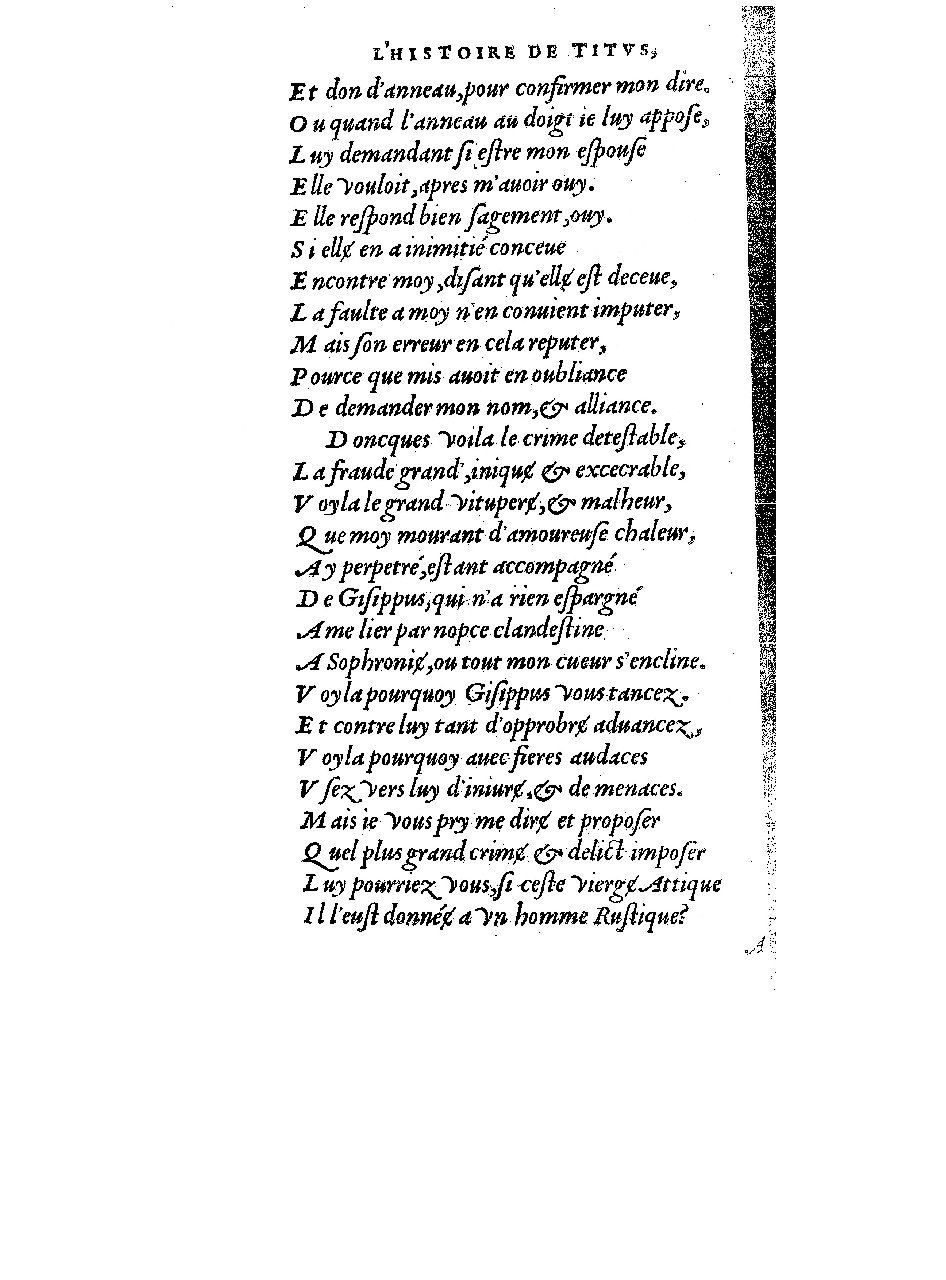 L'HISTOIRE DE TITVS,
Et don d'anneau, pour confirmer mon dire.
Ou quand l'anneau au doigt ie luy appoſe,
Luy demandant ſi eſtre mon eſpouſe
Elle vouloit, apres m'auoir ouy.
Elle reſpond bien ſagement, ouy.
Si ellɇ en a inimitié conceue
Encontre moy, diſant qu'ellɇ eſt deceue,
La faulte a moy n'en conuient imputer,
Mais ſon erreur en cela reputer,
Pource que mis auoit en oubliance
De demander mon nom, & alliance.
Doncques voila le crime deteſtable,
La fraude grand', iniquɇ & excecrable,
Voyla le grand vituperɇ, & malheur,
Que moy mourant d'amoureuſe chaleur,
Ay perpetré, eſtant accompagné
De Giſippus, qui n'a rien eſpargné
A me lier par nopce clandeſtine
A Sophroniɇ, ou tout mon cueur s'encline.
Voyla pourquoy Giſippus vous tancez.
Et contre luy tant d'opprobrɇ aduancez,
Voyla pourquoy auec fieres audaces
Vſez vers luy d'iniurɇ, & de menaces.
Mais ie vous pry me dirɇ et propoſer
Quel plus grand crimɇ & delict impoſer
Luy pourriez vous, ſi ceſte viergɇ Attique
Il l'euſt donnéɇ a vn homme Ruſtique?
A